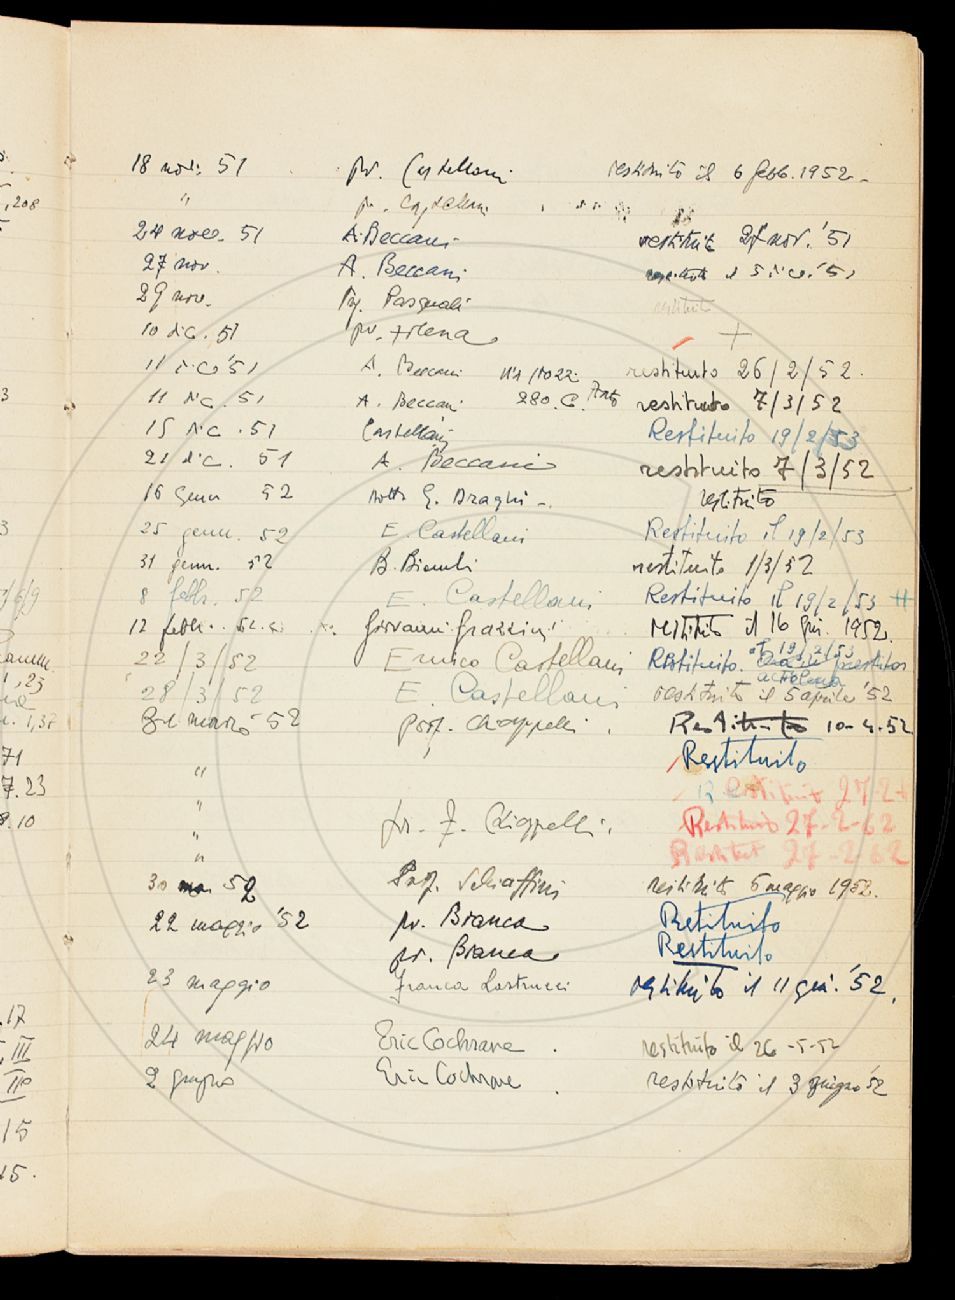 208
18 nov. 51 pr. Castellani restituito il 6 febb. 1952.
" pr. Castellani
24 nov. 51 A. Beccani restituito 27 nov. '51
27 nov. A. Beccani il 3 dic. '51
29 nov. Pasquali restituito
10 dic. 51 pr. +
11 dic. '51 A. Beccani restituito 26/2/52.
11 dic. 51 A. Beccani 280. C. restituito 7/3/52
15 dic. 51 Castellani Restituito 19/2/53
21 dic. 51 A. Beccani restituito 7/3/52
16 genn 52 dott. G. Draghi restituito
25 genn. 52 E. Castellani Restituito il 19/2/53
31 genn. 52 B. restituito 1/3/52
8 febbr. 52 E. Castellani Restituito il 19/2/53
12 febbr. 52 Giovanni Grazzini restituito il 16 giu. 1952.
22/3/52 Enrico Castellani Restituito. il 19/2/53
28/3/52 E. Castellani restituito il 5 aprile '52
31 marzo 52 Prof. Chiappelli. Restituito 10-4-52
Restituito
" Restituito 27-2
" pr. F. Chiappelli. Restituito 27-2-62
" Restituit 27-2-62
" 
30 52 Prof. Schiaffini restituito 6 maggio 1952.
22 maggio '52 pr. Branca Restituito
pr. Branca Restituito
23 maggio Franca Lastrucci restituito il 11 giu. '52.
24 maggio Eric Cochrane. restituito il 26-5-52
2 giugno Eric Cochrane. restituito il 3 giugno '52
71
7.23
8.10
.17
III
15
15.